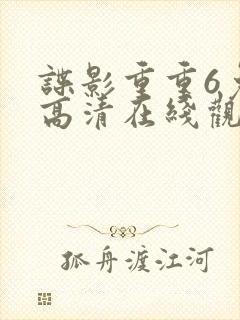 諜影重重6
高清在綫觀
孤舟渡江河